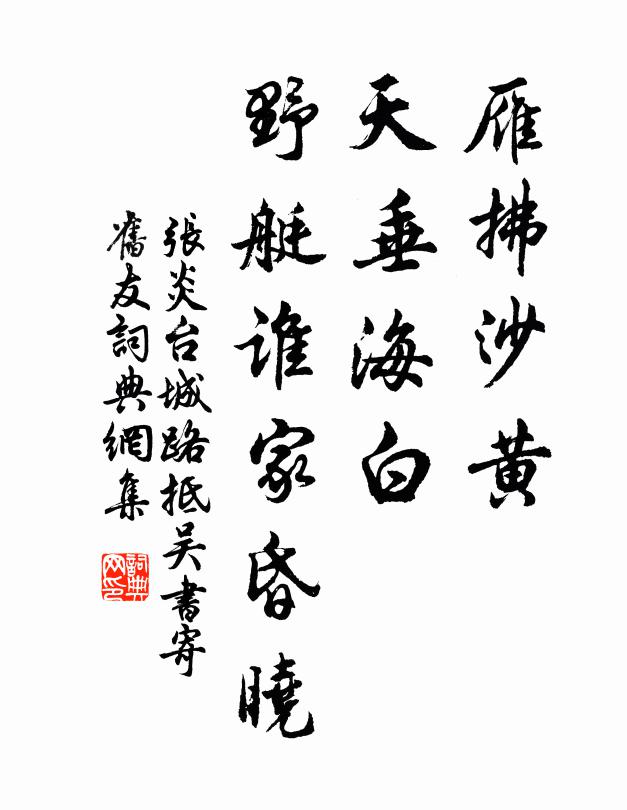 雁拂沙黄
天垂海白
野艇誰家昏曉
張炎台城路抵吴書寄
舊友詞典網集
詞典网印